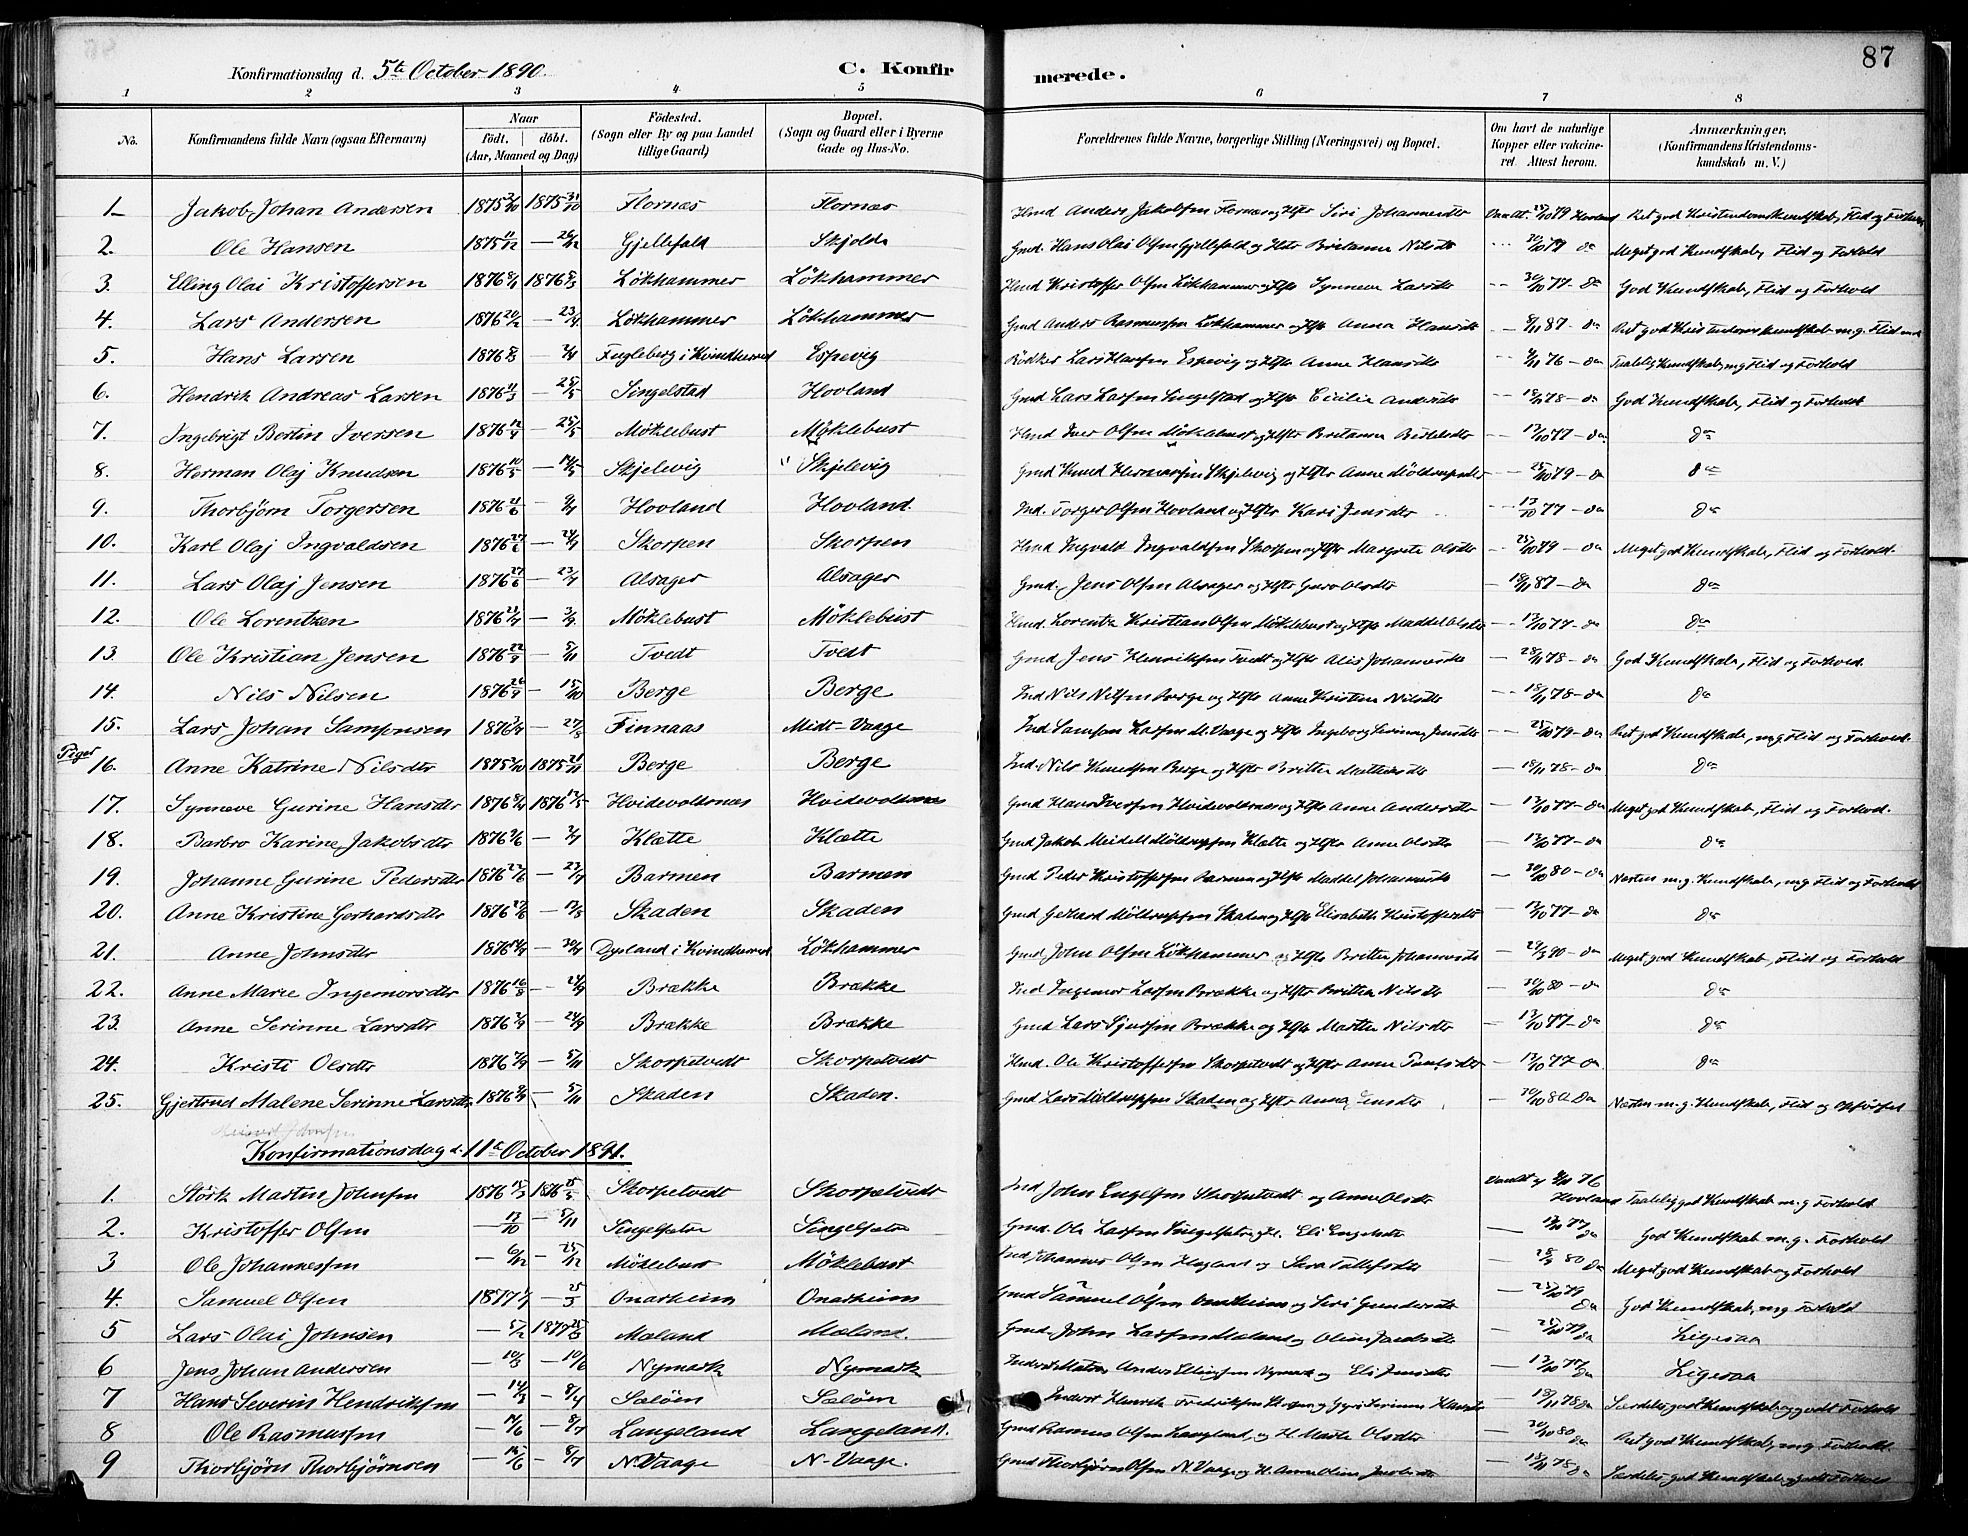 87
Konfirmationsdag d. 5te October 1890. C. Konfirmerede.
1 2 3 4 5 6 7 8
No. Konfirmandens fulde Navn (ogsaa Efternavn) Naar født. døbt. (Aar, Maaned og Dag) Fødested. (Sogn eller By og paa Landet tillige Gaard) Bopæl. (Sogn og Gaard eller i Byerne Gade og Hus-No. Forældrenes fulde Navne, borgerlige Stilling (Næringsvei) og Bopæl. Om havt de naturlige Kopper eller vakcineret. Attest herom. Anmærkninger, (Konfirmandens Kristendomskundskab m. V.)
1 Jakob Johan Andersen 1875 1875 Flornæs Flornæs Hmd Anders Jakobsen Flornæs og Hstr Siri Johannesdtr 79 Hovland Ret god Kristendomskundskab, Flid og Forhold
2. Ole Hansen 1875 11/12 — 26/12 Gjellefald Skjolde Gmd. Hans Olai Olsen Gjellefald og Hstr Britanna Nilsdtr 79 do Meget god Kundskab, Flid og Forhold
3. Elling Olai Kristoffersen 1876 1876 Løkhammer Løkhammer Hmd Kristoffer Olsen Løkhammer og Hstr Synneve Larsdtr 30/10 77 - do God Kundskab, Flid og Forhold
4. Lars Andersen 1876 20/2 — 23/4 Løkhammer Løkhammer Gmd Anders Rasmussen Løkhammer og Hstr Anna Hansdtr 87 - do Ret god Kristendomskundskab m.g. Flid
5. Hans Larsen 1876 Fugleberg i Kvindherred Espevig Lars Hansen Espevig og Hstr Anne Hansdtr 76 - do Taalelig Kundskab, mg Flid og Forhold
6. Hendrik Andreas Larsen 1876 11/3 — 25/5 Singelstad Hovland Gmd Lars Larsen Singelstad og Hstr Cecilie Andersdtr 78 - do God Kundskab, Flid og Forhold
7. Ingebrigt Bertin Iversen 1876 12/4 — 25/5 Møklebust Møklebust Hmd Iver Olsen Møklebust og Hstr Britanna 13/10 77 - do do
8. Herman Olaj Knudsen 1876 10/5 — Skjelevig Skjelevig Gmd Knud Hermansen Skjelevig og Hstr Anne 25/10 79 - do do
9. Thorbjørn Torgersen 1876 21/6 — Hovland Hovland. Ind. Torger Olsen Hovland og Hstr Kari Jensdtr 13/10 77 - do do
10. Karl Olaj Ingvaldsen 1876 27/6 — Skorpen Skorpen Hmd Ingvald Ingvaldsen Skorpen og Hstr Margrete Olsdtr 25/10 79 - do Meget god Kundskab, Flid og Forhold.
11. Lars Olaj Jensen 1876 27/6 — 23/7 Alsager Alsager Gmd. Jens Olsen Alsager og Hstr Guro Olsdtr 18/11 87 - do do
12. Ole Lorentzen 1876 — 3/9 Møklebust Møklebust Hmd. Lorentz Kristian Olsen Møklebust og Hstr Maddel Olsdtr 13/10 77 - do do
13. Ole Kristian Jensen 1876 22/9 — 5/11 Tvedt Tvedt Gmd Jens Henriksen Tvedt og Hstr Alis Johannesdtr 78 - do God Kundskab, Flid og Forhold.
14. Nils Nilsen 1876 26/9 — 15/10 Berge Berge Ind Nils Nilsen Berge og Hstr Anne Kristine Nilsdtr 18/11 78 - do do
15. Lars Johan Sampsonsen 1876 — 27/8 Finnaas Midt-Vaage Ind Samson Larsen M. Vaage og Hstr Ingeborg Serina Jensdtr 25/10 79 - do Ret god Kundskab, mg Flid og Forhold.
Piger
16. Anne Katrine Nilsdtr 1875 1875 21/11 Berge Berge Ind. Nils Knudsen Berge og Hstr Britta 18/11 78 - do do
17. Synneve Gurine Hansdtr 1876 1876 Hvidevoldsnæs Hvidevoldsnæs Gmd Hans Iversen Hvidevoldsnæs og Hstr Anne Andersdtr 13/10 77 - do Meget god Kundskab, Flid og Forhold.
18. Barbro Karine Jakobsdtr 1876 — Klætte Klætte Gmd Jakob Meidell Møldrupsen Klætte og Hstr Anne Olsdtr 13/10 77 - do do
19. Johanne Gurine Pedersdtr 1876 — 23/7 Barmen Barmen Gmd Peder Kristoffersen Barmen og Hstr Maddel Johannesdtr 30/10 80 - do Næsten m.g. Kundskab, mg Flid og Forhold
20. Anne Kristine Gerhardsdtr 1876 — Skaden Skaden Gmd Gerhard Møldrupsen Skaden og Hstr Elisabeth Kristoffersdtr 13/10 77 - do do
21. Anne Johnsdtr 1876 — Dysland i Kvindherred Løkhammer Gmd John Olsen Løkhammer og Hstr Britta Johannesdtr 90 - do Meget god Kundskab, Flid og Forhold
22. Anne Marie Ingemorsdtr 1876 16/8 — 24/9 Brække Brække Ind Ingemor Larsen Brække og Hstr Britta Nilsdtr 30/10 80 - do do
23. Anne Serinne Larsdtr 1876 — 24/9 Brække Brække Gmd Lars Sjursen Brække og Hstr Martha Nilsdtr 13/10 77 - do do
24. Kristi Olsdtr 1876 — 5/11 Skorpetvedt Skorpetvedt Hmd. Ole Kristoffersen Skorpetvedt og Hstr Anne 13/10 77 do do
25. Gjertrud Malene Serinne Larsdtr 1876 — 5/11 Skaden Skaden. Gmd Lars Møldrupsen Skaden og Hstr Anna Jensdtr 30/10 80 do Næsten m.g. Kundskab, Flid og Opførsel
Konfirmationsdag d. 11te October 1891.
1. Størk Martin Johnsen 1876 1876 Skorpetvedt Skorpetvedt Ind John Engelsen Skorpetvedt og Anne Olsdtr 76 Hovland Taalelig god Kundskab m.g Forhold
2. Kristoffer Olsen — 13/10 — 5/11 Singelsætre Singelsætre Gmd. Ole Larsen Singelsætre og H. Eli Engelsdtr 13/10 77 do God Kundskab m.g. Forhold
3 Ole Johannessen — 6/12 — 25/12 Møklebust Møklebust Ind Johannes Olsen Hagland og Sara Tollefsdtr 80 do Meget god Kundskab og Forhold
4. Samuel Olsen 1877 — 25/3 Onarheim Onarheim Gmd Samuel Olsen Onarheim og Siri Gundersdtr 25/10 79 do God Kundskab, mg Forhold
5 Lars Olai Johnsen — 5/2 1877 25/3 Mæland Mæland. Gmd. John Larsen Mæland og Oline 25/10 79 do Ligesaa
6 Jens Johan Andersen — 10/3 — 10/6 Nymark Nymark Anders Ellingsen Nymark og Eli Jensdtr 13/10 77 do Ligesaa
7 Hans Severin Hendriksen — 14/3 — 8/4 Sæløen Sæløen Inderst Henrik Fredriksen 18/11 78 do Særdeles god Kundskab og godt Forhold
8 Ole Rasmussen — 14/6 — 8/7 Langeland Langeland. Gmd Rasmus Olsen Langeland og H. Marta Olsdtr 30/10 80 do Ret god Kundskab, mg. Forhold
9 Thorbjørn Thorbjørnsen — — 8/7 N. Vaage N-Vaage. Gmd Thorbjørn Olsen N. Vaage og H. Anne Oline Jacobsdtr 18/11 78 do Særdeles god Kundskab og godt Forhold